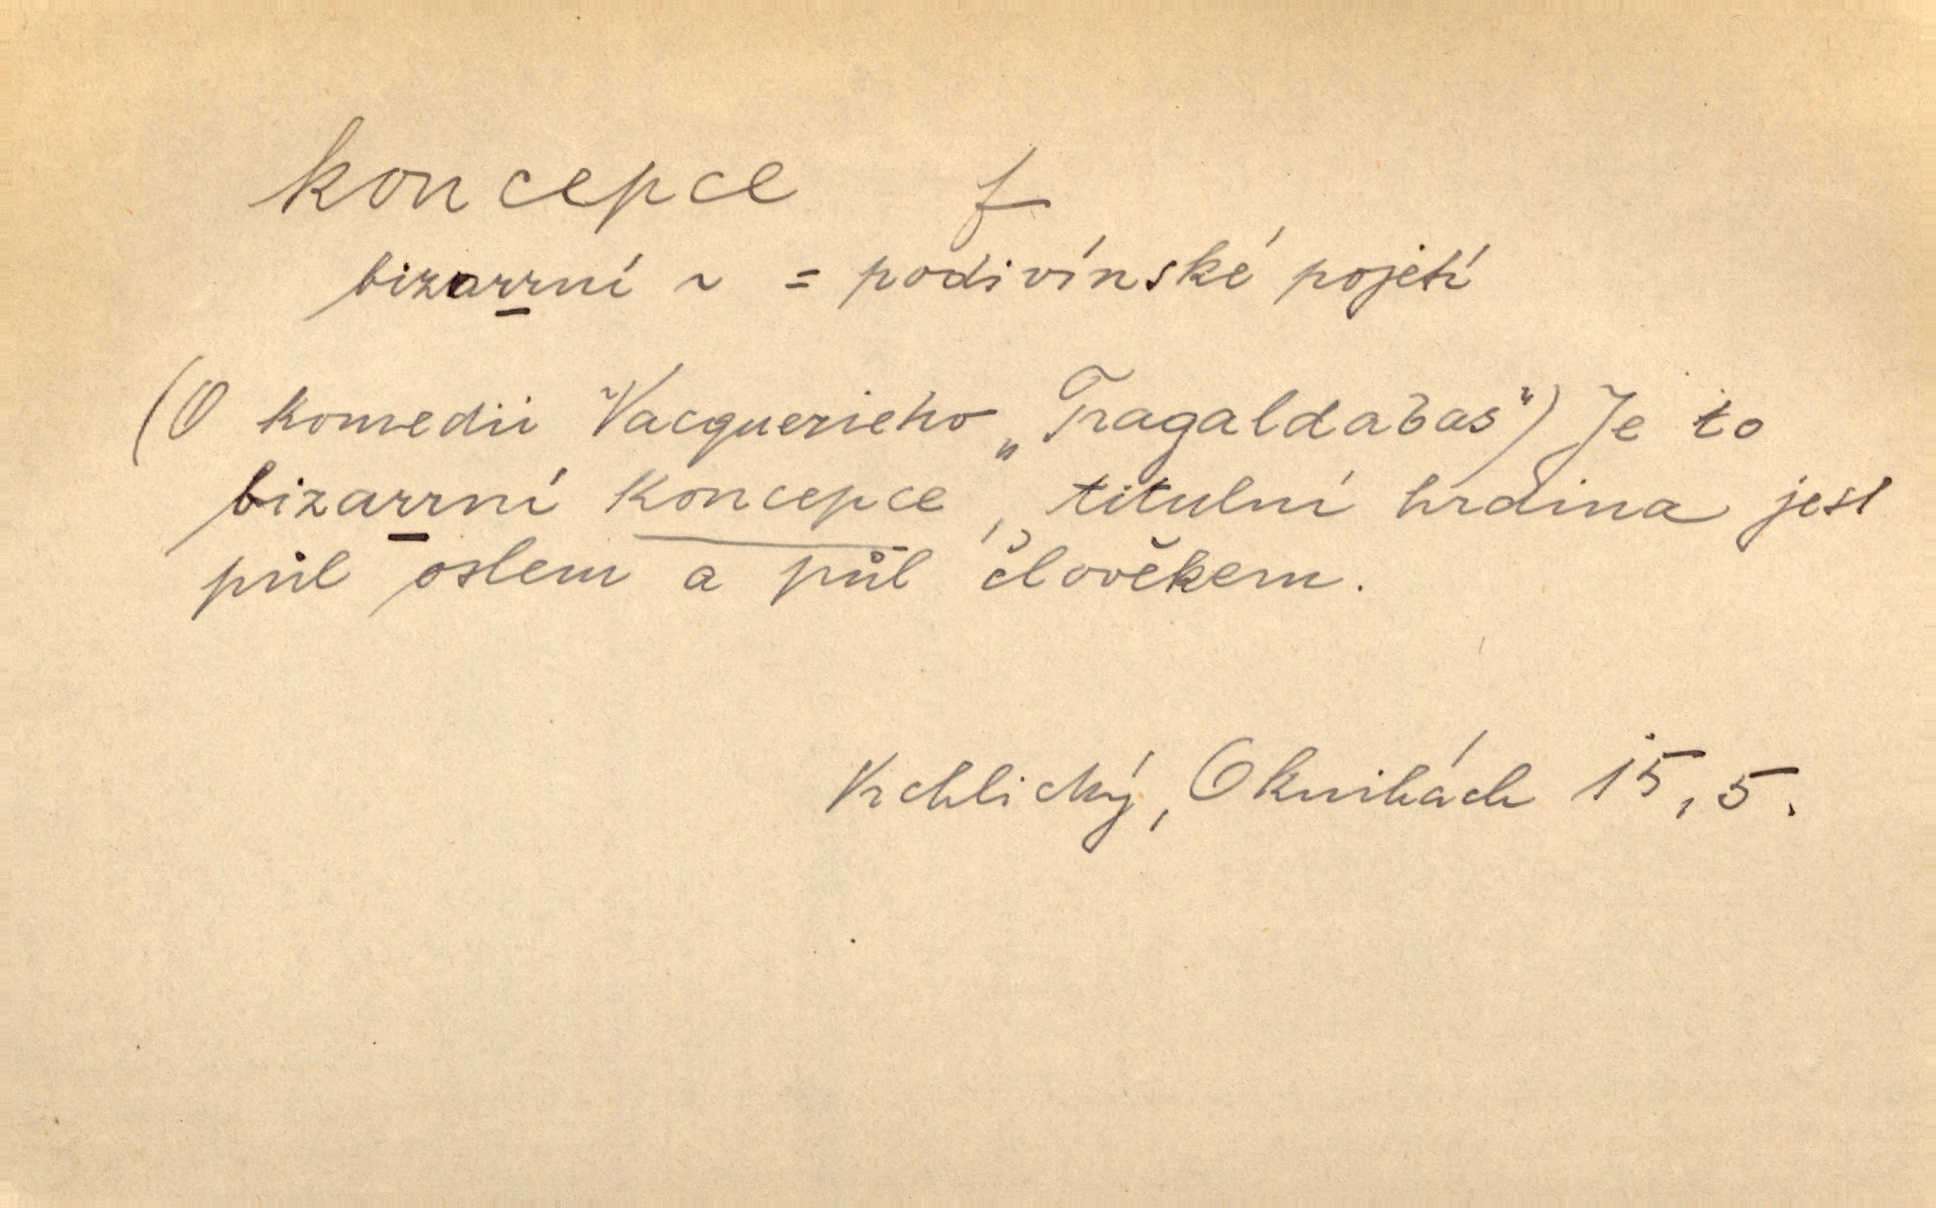 koncepce f
bizarrní ~ = podivínské pojetí
(O komedii Vacquerieho „Tragaldabas“) Je to
bizarrní koncepce, titulní hrdina jest
půl oslem a půl člověkem.
Vrchlický, O knihách 15, 5.